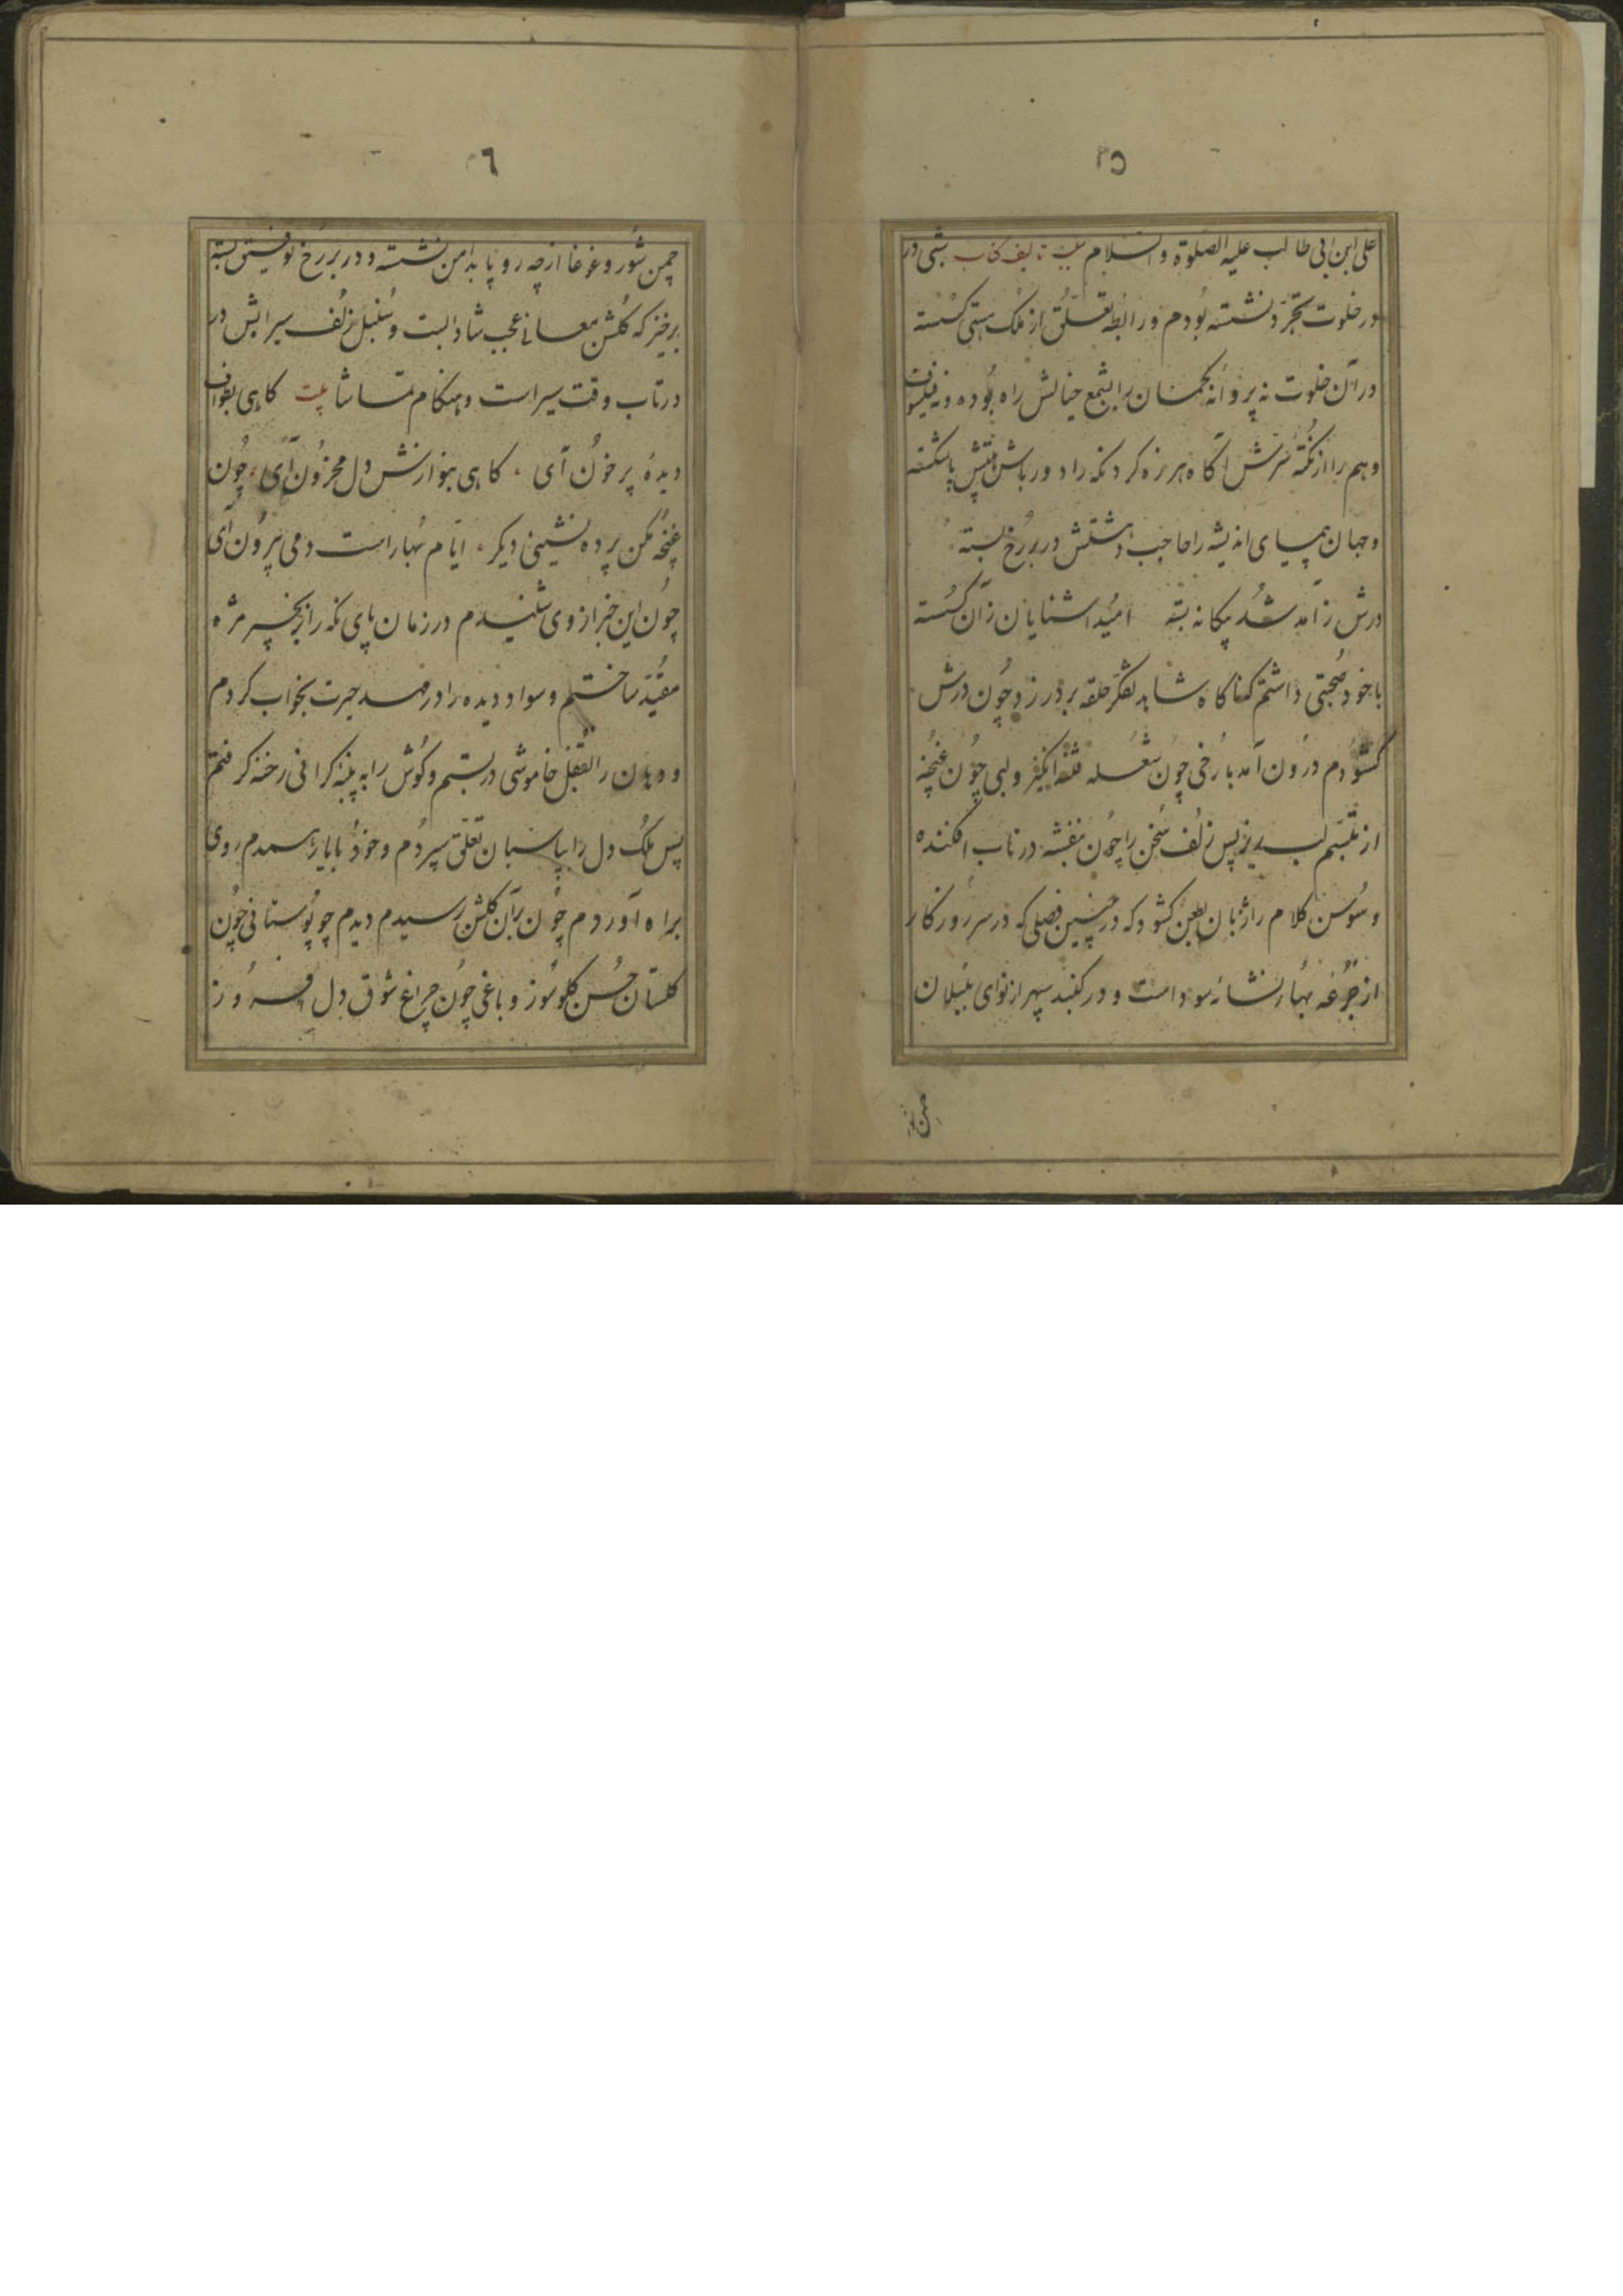 ۲۵
علی ابن ابی طالب علیه الصلوة والسلام تالیف کتاب شبی در
در خلوت تجرد نشسته بودم و رابطه تعلق از ملک هستی گسسته
در آن خلوت نه پروانه کمان را بشمع خیالش راه بوده و نه فیلسوف
وهم را از نکته سرش آگاه هرزه گرد نکه را دورباش پا شکسته
و جهان پیمای اندیشه را حاجب در بر رخ بسته
درش ز آمد شد بیکانه بسته امید اشنایان زان کسسته
با خود صحبتی داشتم که ناکاه شاهد تفکر حلقه بر در زد چون درش
کشودم درون آمد با رخی چون شعله فتنه انکیز و لبی چون غنچه
از تبسم لبریز پس زلف سخن را چون بنفشه در تاب افکنده
و سوسن کلام را زبان بطعن کشود که در چنین فصلی که در سر روزکار
از جرعه بهار نشائه سوداست و در کنبد سپهر از نوای بلبلان
چمن شور
۲٦
چمن شور و غوغا از چه رو پا بدامن نشسته و در بر رخ توفیق بسته
برخیز که کلشن معانی عجب شادابست و سنبل زلف سیرابش در
در تاب وقت سیر است و هنکام تماشا بیت کاهی بطواف
دیده پر خون آی کاهی بنوازش دل محزون آی چون
غنچه مکن پرده نشینی دیکر ایام بهار است دمی بیرون آی
چون این خبر از وی شنیدم در زمان پای نکه را بزنجیر مژه
مقید ساختم و سواد دیده را در مهد حیرت بخواب کردم
و دهان را بقفل خاموشی در بستم و کوش را به پنبه کرانی رخنه کرفتم
پس ملک دل را بپاسبان تعلق سپردم و خود روی
براه آوردم چون بر آن کلشن رسیدم دیدم چو بوستانی چون
کلستان حسن کلوسوز و باغی چون چراغ شوق دل فروز